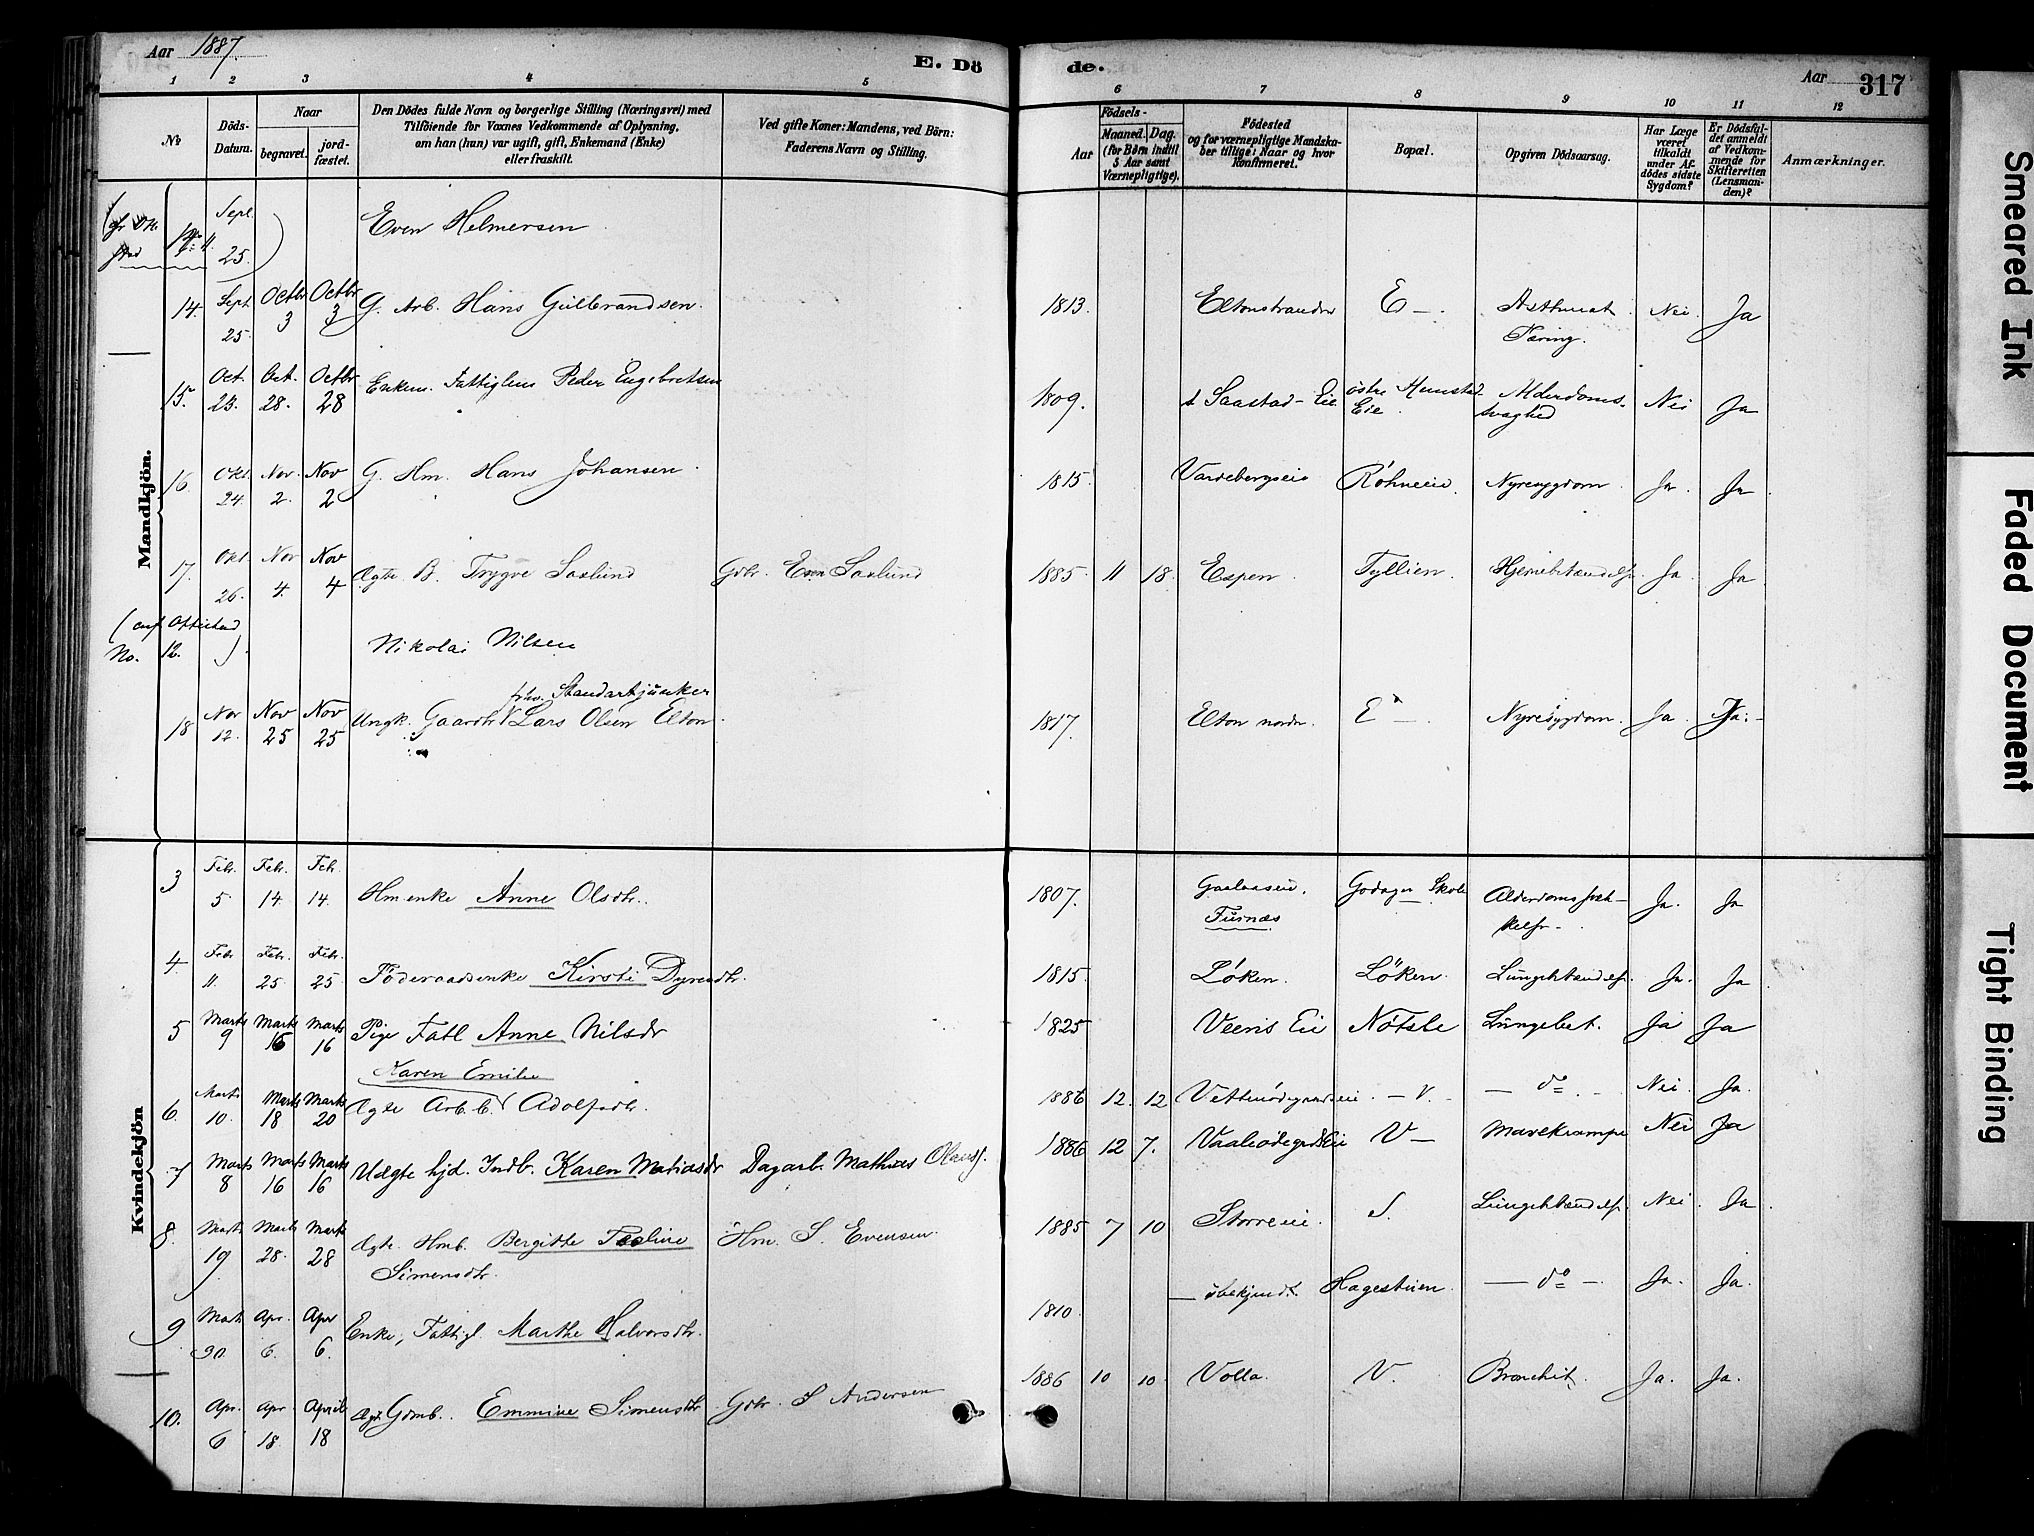 Aar 1887.
E. Dö de.
Aar 317
1 2 3 4 5 6 7 8 9 10 11 12
No
Döds-Datum.
Naar begravet. jord-fæstet.
Den Dödes fulde Navn og borgerlige Stilling (Næringsvei) med
Tilföiende for Voxnes Vedkommende af Oplysning,
om han (hun) var ugift, gift, Enkemand (Enke)
eller fraskilt.
Ved gifte Koner: Mandens, ved Börn:
Faderens Navn og Stilling.
Födsels-
Aar
Maaned. Dag.
(for Börn indtil
5 Aar samt
Værnepligtige).
Födested
og for værnepligtige Mandska-
ber tillige: Naar og hvor
Konfirmeret.
Bopæl.
Opgiven Dödsaarsag.
Har Læge
været
tilkaldt
under Af-
dödes sidste
Sygdom?
Er Dödsfal-
det anmeldt
af Vedkom-
mende for
Skifteretten
(Lensman-
den)?
Anmærkninger.
Mandkjön.
Sept. 25. Even Helmersen
14. Sept. 25. Octbr 3 Octbr 3 G. Arb. Hans Gulbrandsen. 1813. Eltonstranden E. Asthmat. Tæring. Nei. Ja
15. Oct. 23. Oct. 28. Octbr 28 Enkem. Fattiglem Peder Engebretsen 1809. Saastad-Eie østre Eie Alderdoms-svaghed Nei Ja
16. Okt. 24. Nov. 2. Nov 2 G. Hm. Hans Johansen. 1815. Vardebergseie Röhneeie. Nyresygdom. Ja. Ja
17. Okt. 26. Nov 4. Nov 4 Ægte B. Trygve Saslund Gdbr. Even Saslund 1885. 11 18. Espen. Tyllien. Ja. Ja
No. 12. Nikolai Nilsen
18 Nov 12. Nov 25 Nov 25 Ungk. Gaardbr. fhv. Standartjunker Lars Olsen Elton. 1817. Elton nordr. E Nyresygdom. Ja. Ja.
Kvindekjön
3 Febr. 5. Febr. 14. Feb. 14. Hmenke Anne Olsdtr. 1807. Gaalaaseie. Furnæs Godager Skole Ja. Ja
4. Febr 11. Febr. 25. Febr. 25. Föderaadsenke Kirsti Dyresdtr. 1815. Löken. Löken. Lungebetændelse. Ja. Ja
5 Marts 9 Marts 16 Marts 16 Pige Fatl Anne Nilsdr 1825 Veens Eie Nötsle Lungebet. Ja Ja
6. Marts 10. Marts 18 Marts 20 Ægte Arb. b. Karen Emilie Adolfsdtr. 1886 12. 12 V. do. Nei. Ja.
7 Marts 8 Marts 16 Marts 16 Uægte hjd. Indb. Karen Matiasdr Dagarb. Mathias Olaus. 1886 12 7. V Mavekrampe Nei Ja
8. Marts 19 Marts 28. Marts 28 Ægte Hmb. Bergitte Simensdtr. Hm. S. Evensen. 1885 7 10 Storreie. S. Lungebetændelse Nei. Ja
9 Marts 30. Apr. 6. Apr 6. Enke, Fattigl. Marthe Halvorsdtr. 1810. ubekjendt. Hagestuen. do Ja. Ja.
10. Apr. 6 Apr 18. April 18 Ægte Gdmb. Emmine Simensdtr Gdbr. S Andersen 1886 10 10. Volla. V. Bronchit. Ja. Ja.
Smeared Ink
Faded Document
Tight Binding